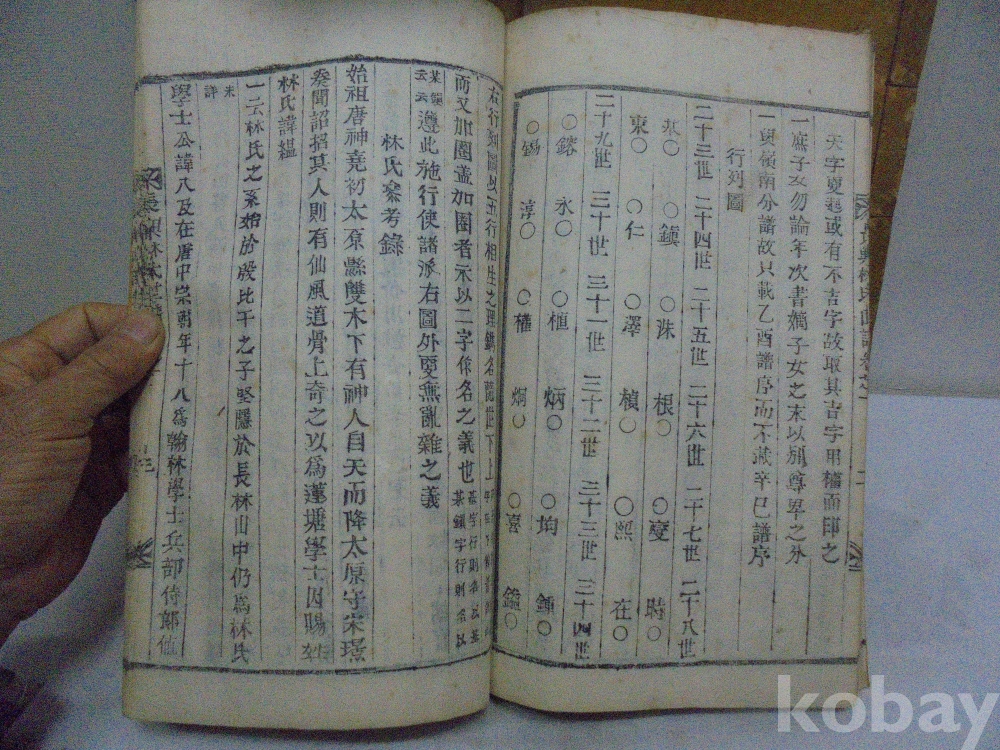 天字夏
或有不吉字故取其吉字用
而印之
一庶子女勿論年次書嫡子女之末以別尊卑之分
一頭嶺南分譜故只載乙酉譜序而不藏辛巳譜序
行列圖
二十三世 二十四世 二十五世 二十六世 二十七世 二十八世
基○ ○鎭 ○洙 根○ ○夔 時○
東○ ○仁 ○澤 楨○ ○熙 在○
二十九世 三十世 三十一世 三十二世 三十三世 三十四世
○鎔 永○ ○植 炳○ ○均 鍾○
○錫 淳○ ○權 炯○ ○喜 鎰○
右行列圖以五行相生之理
名
世下上
而又加圈盖加圈者示以二字作名之義也
遵此施行使諸派右圖外更無亂雜之義
林氏叅考錄
始祖唐神堯初太原縣雙木下有神人自天而降太原守宋璟
奏聞詔招其人則有仙風道骨上奇之以爲蓬塘學士因賜姓
林氏諱縕
一云林氏之系始於殷比干之子堅隱於長林山中仍爲林氏
未詳
學士公諱八及在唐中宗朝年十八爲翰林學士兵部侍郞他
kobay